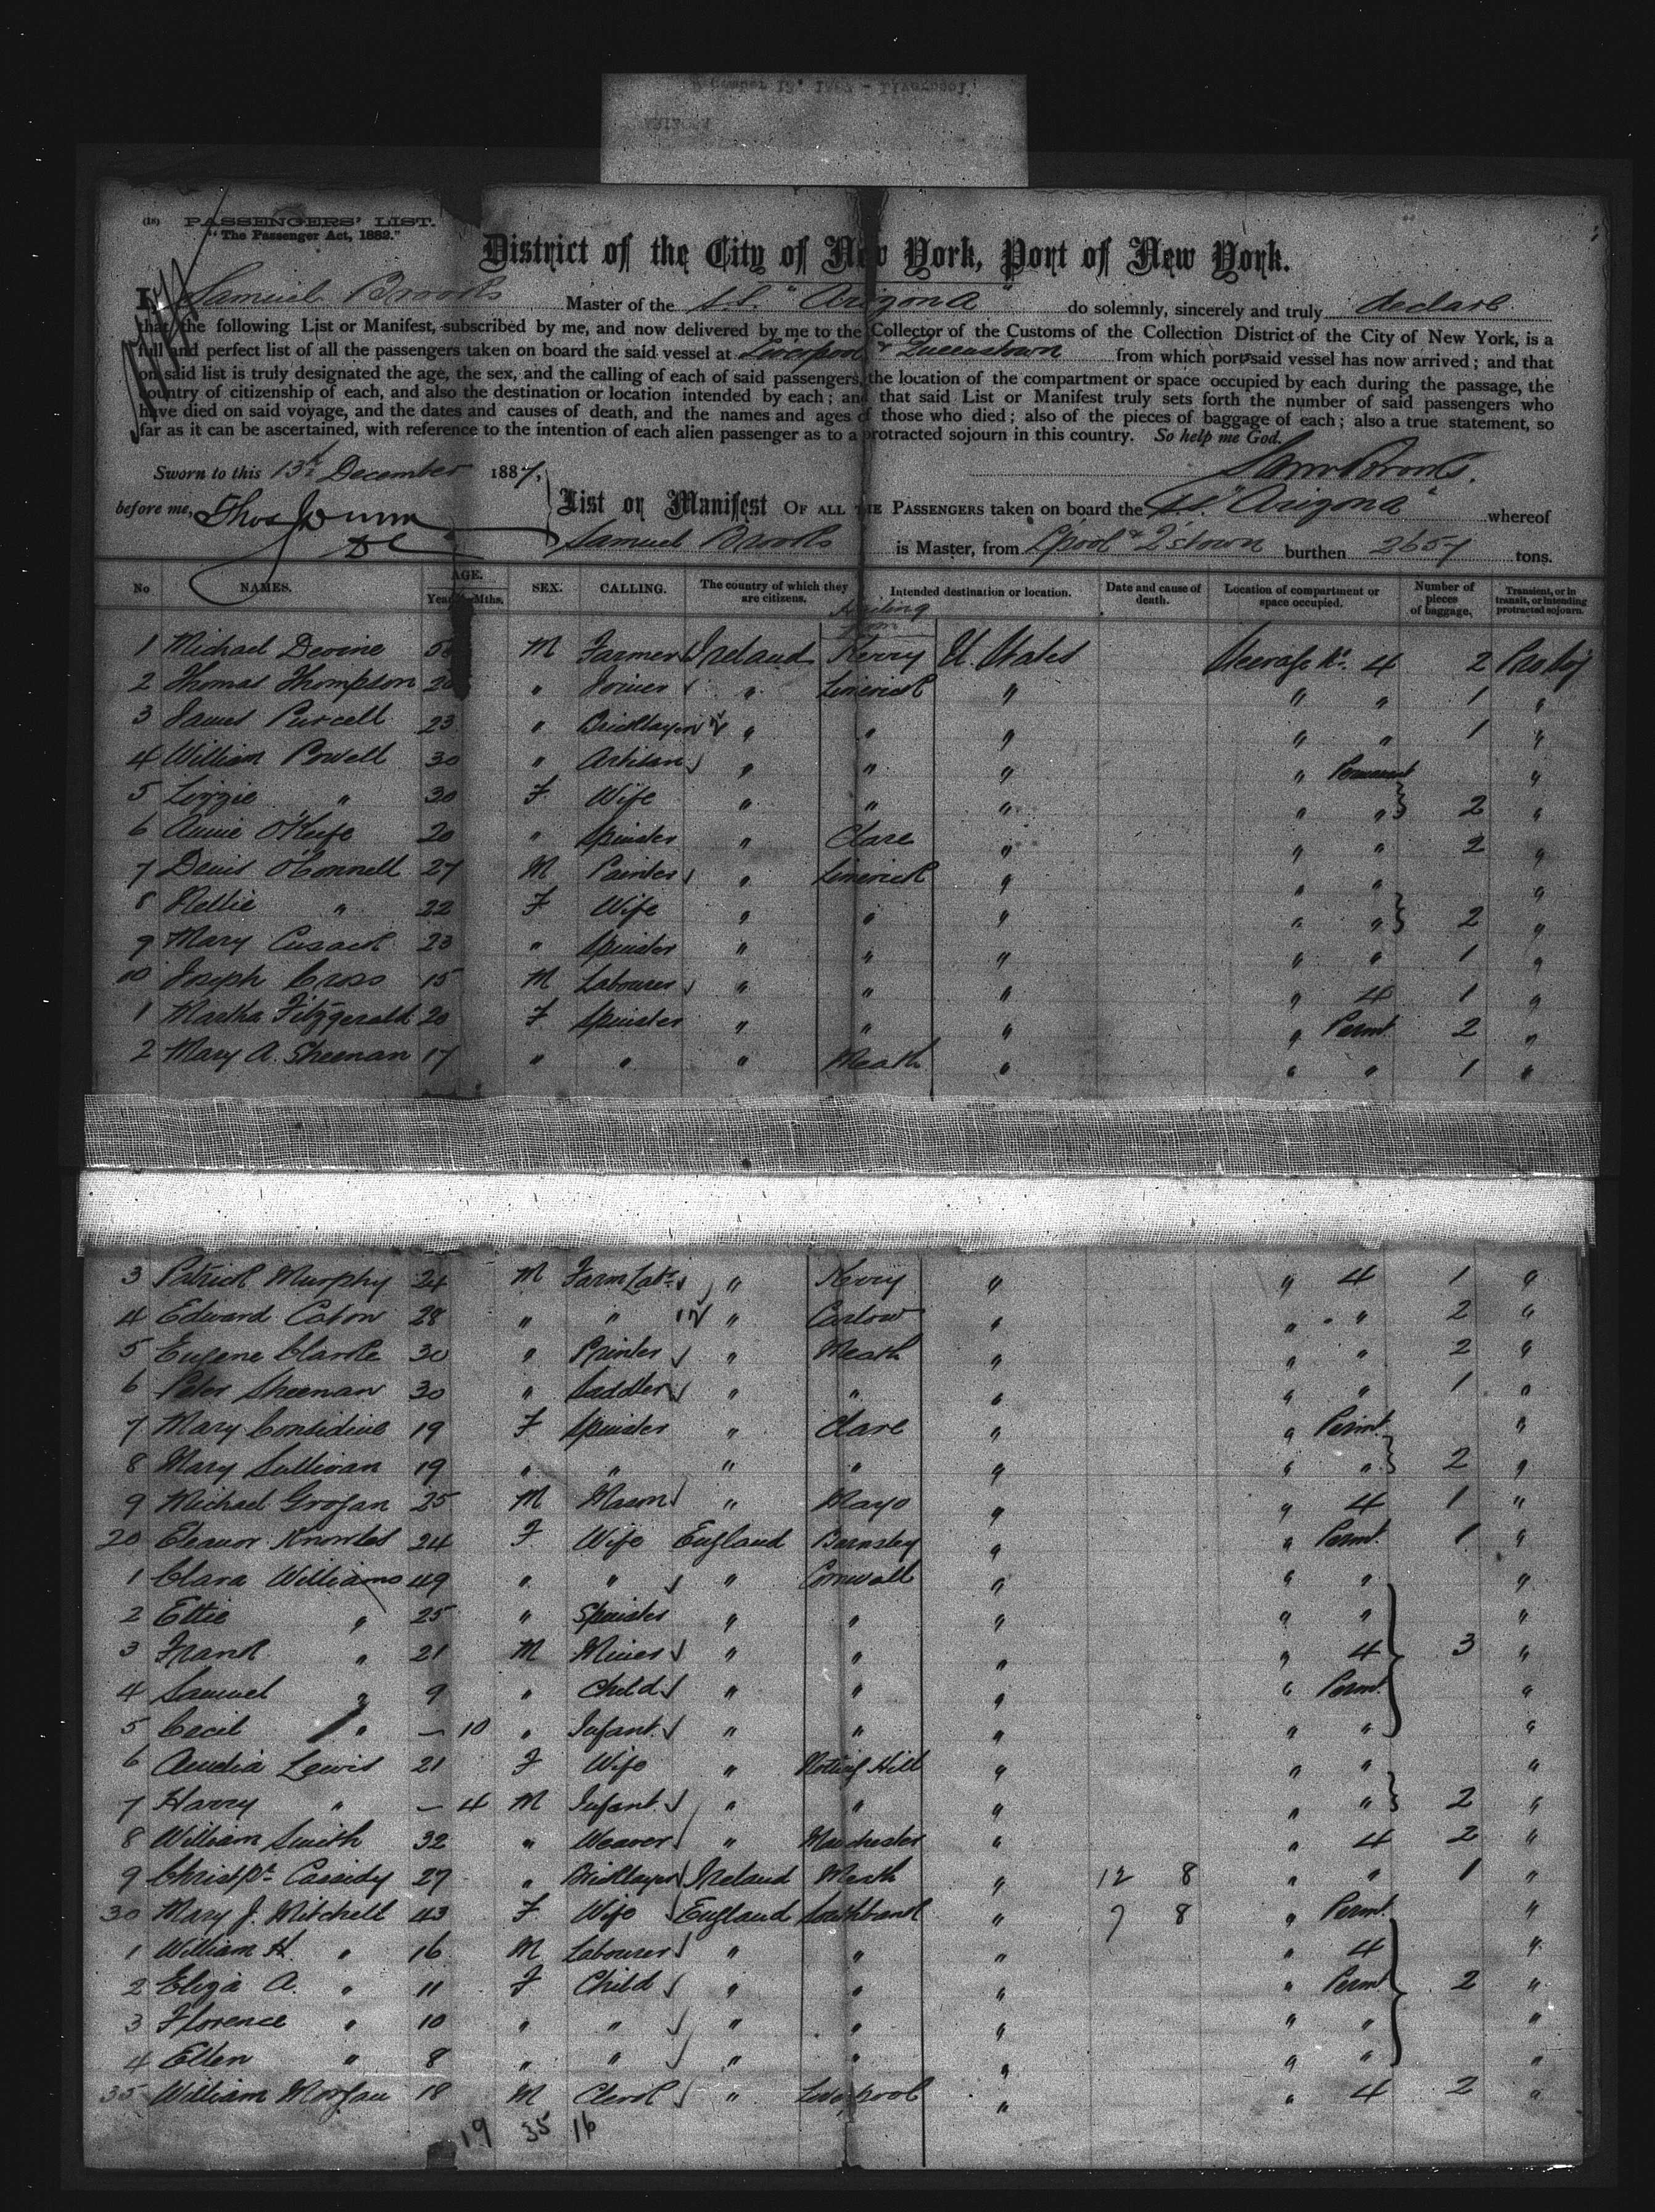 (18) PASSENGERS' LIST.
"The Passenger Act, 1882."
District of the City of New York, Port of New York.
I, Samuel Brooks Master of the S.S. "Arizona" do solemnly, sincerely and truly declare
that the following List or Manifest, subscribed by me, and now delivered by me to the Collector of the Customs of the Collection District of the City of New York, is a
full and perfect list of all the passengers taken on board the said vessel at Liverpool & Queenstown from which port said vessel has now arrived; and that
on said list is truly designated the age, the sex, and the calling of each of said passengers, the location of the compartment or space occupied by each during the passage, the
country of citizenship of each, and also the destination or location intended by each; and that said List or Manifest truly sets forth the number of said passengers who
have died on said voyage, and the dates and causes of death, and the names and ages of those who died; also of the pieces of baggage of each; also a true statement, so
far as it can be ascertained, with reference to the intention of each alien passenger as to a protracted sojourn in this country. So help me God.
Sworn to this 13th December 1887, Saml Brooks.
before me, List or Manifest OF ALL THE PASSENGERS taken on board the S.S. "Arizona" whereof
Samuel Brooks is Master, from L'pool & Q'stown burthen tons.
No NAMES. AGE. Years Mths. SEX. CALLING. The country of which they are citizens. Intended destination or location. Date and cause of death. Location of compartment or space occupied. Number of pieces of baggage. Transient, or in transit, or intending protracted sojourn.
1 Michael Devine M Farmer Ireland Kerry U. States Steerage No. 4 2
2 Thomas Thompson 20 " Joiner " Limerick " " " 1 "
3 James Purcell 23 " Bricklayer " " " " " 1 "
4 William Powell 30 " Artisan " " " " "
5 Lizzie " 30 F Wife " " " " " 2 "
6 Annie O'Keefe 20 " Spinster " Clare " " " 2 "
7 Denis O'Connell 27 M Painter " Limerick " " " "
8 Nellie " 22 F Wife " " " " " 2 "
9 Mary Cusack 23 " Spinster " " " " " 1 "
10 Joseph Cross 15 M Labourer " " " " 4 1 "
1 Martha Fitzgerald 20 F Spinster " " " " Permt. 2 "
2 Mary A. Sheenan 17 " " " Meath " " " 1 "
3 Patrick Murphy 24 M Farm Labr. " Kerry " " 4 1 "
4 Edward Caton 28 " " " Carlow " " " 2 "
5 Eugene Clarke 30 " Printer " Meath " " " 2 "
6 Peter Sheenan 30 " Saddler " " " " " 1 "
7 Mary Considine 19 F Spinster " Clare " " Permt. "
8 Mary Sullivan 19 " " " " " " " 2 "
9 Michael Grogan 25 M Mason " Mayo " " 4 1 "
20 Eleanor Knowles 24 F Wife England Barnsley " " Permt. 1 "
1 Clara Williams 49 " " " Cornwall " " " "
2 Ettie " 25 " Spinster " " " " " "
3 Frank " 21 M Miner " " " " 4 3 "
4 Samuel " 9 " Child " " " " Permt. "
5 Cecil " — 10 " Infant " " " " " "
6 Amelia Lewis 21 F Wife " Notting Hill " " " "
7 Harry " — 4 M Infant " " " " " 2 "
8 William Smith 32 " Weaver " Manchester " " 4 2 "
9 Christr. Cassidy 27 " Bricklayer Ireland Meath " 12 8 " " 1 "
30 Mary J. Mitchell 43 F Wife England Southbank " 7 8 " Permt. "
1 William H. " 16 M Labourer " " " " 4 "
2 Eliza A. " 11 F Child " " " " Permt 2 "
3 Florence " 10 " " " " " " " "
4 Ellen " 8 " " " " " " " "
35 William Morgan 18 M Clerk " Liverpool " " 4 2 "
19 35 16